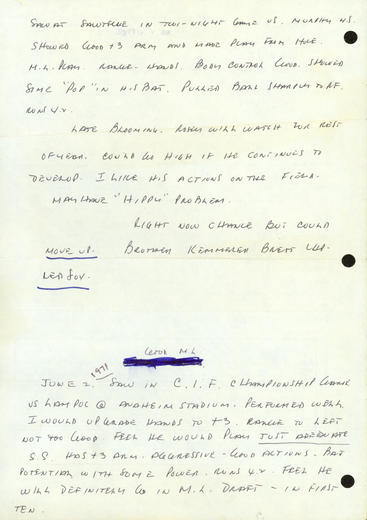 SAW AT SAWTELLE IN TWO-NIGHT GAME VS. MURPHY H.S.
SHOWED GOOD +3 ARM AND MADE PLAY FROM HOLE.
M.L. PLAY. RANGE - HANDS. BODY CONTROL GOOD. SHOWED
SOME "POP" IN HIS BAT. PULLED BALL SHARPLY TO RF.
RUNS 4.2.
LATE BLOOMING. WILL WATCH FOR REST
OF YEAR. COULD GO HIGH IF HE CONTINUES TO
DEVELOP. I LIKE HIS ACTIONS ON THE FIELD.
MAY HAVE "HIPPY" PROBLEM.
RIGHT NOW CHANCE BUT COULD
MOVE UP. BROTHER KEMMERER BRETT
RED SOX.
GOOD M.L.
1971
JUNE 2. SAW IN C.I.F. CHAMPIONSHIP GAME
VS LOMPOC @ ANAHEIM STADIUM. PERFORMED WELL.
I WOULD UPGRADE HANDS TO +3. RANGE TO LEFT
NOT TOO GOOD. FEEL HE WOULD PLAY JUST ADEQUATE
S.S. HAS +3 ARM. AGGRESSIVE - GOOD ACTIONS. BAT
POTENTIAL WITH SOME POWER. RUNS 4.2. FEEL HE
WILL DEFINITELY GO IN M.L. DRAFT - IN FIRST
TEN.